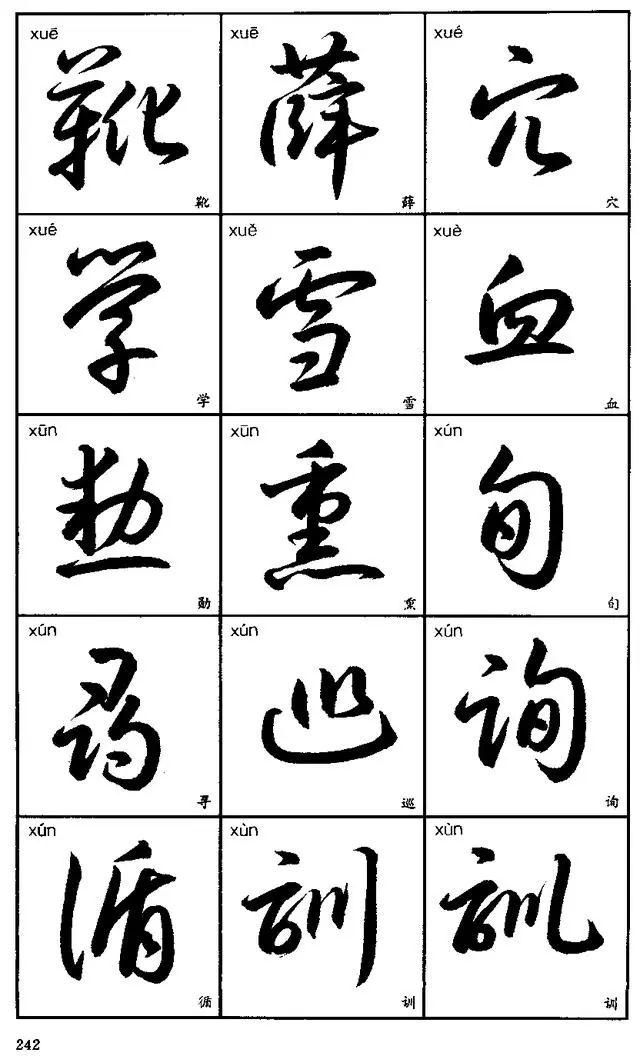 xuē xuē xué
靴 薛 穴
靴 薛 穴
xué xuě xuè
学 雪 血
学 雪 血
xūn xūn xún
勋 熏 旬
勋 熏 旬
xún xún xún
寻 巡 询
寻 巡 询
xún xùn xùn
循 訓 訓
循 训 训
242